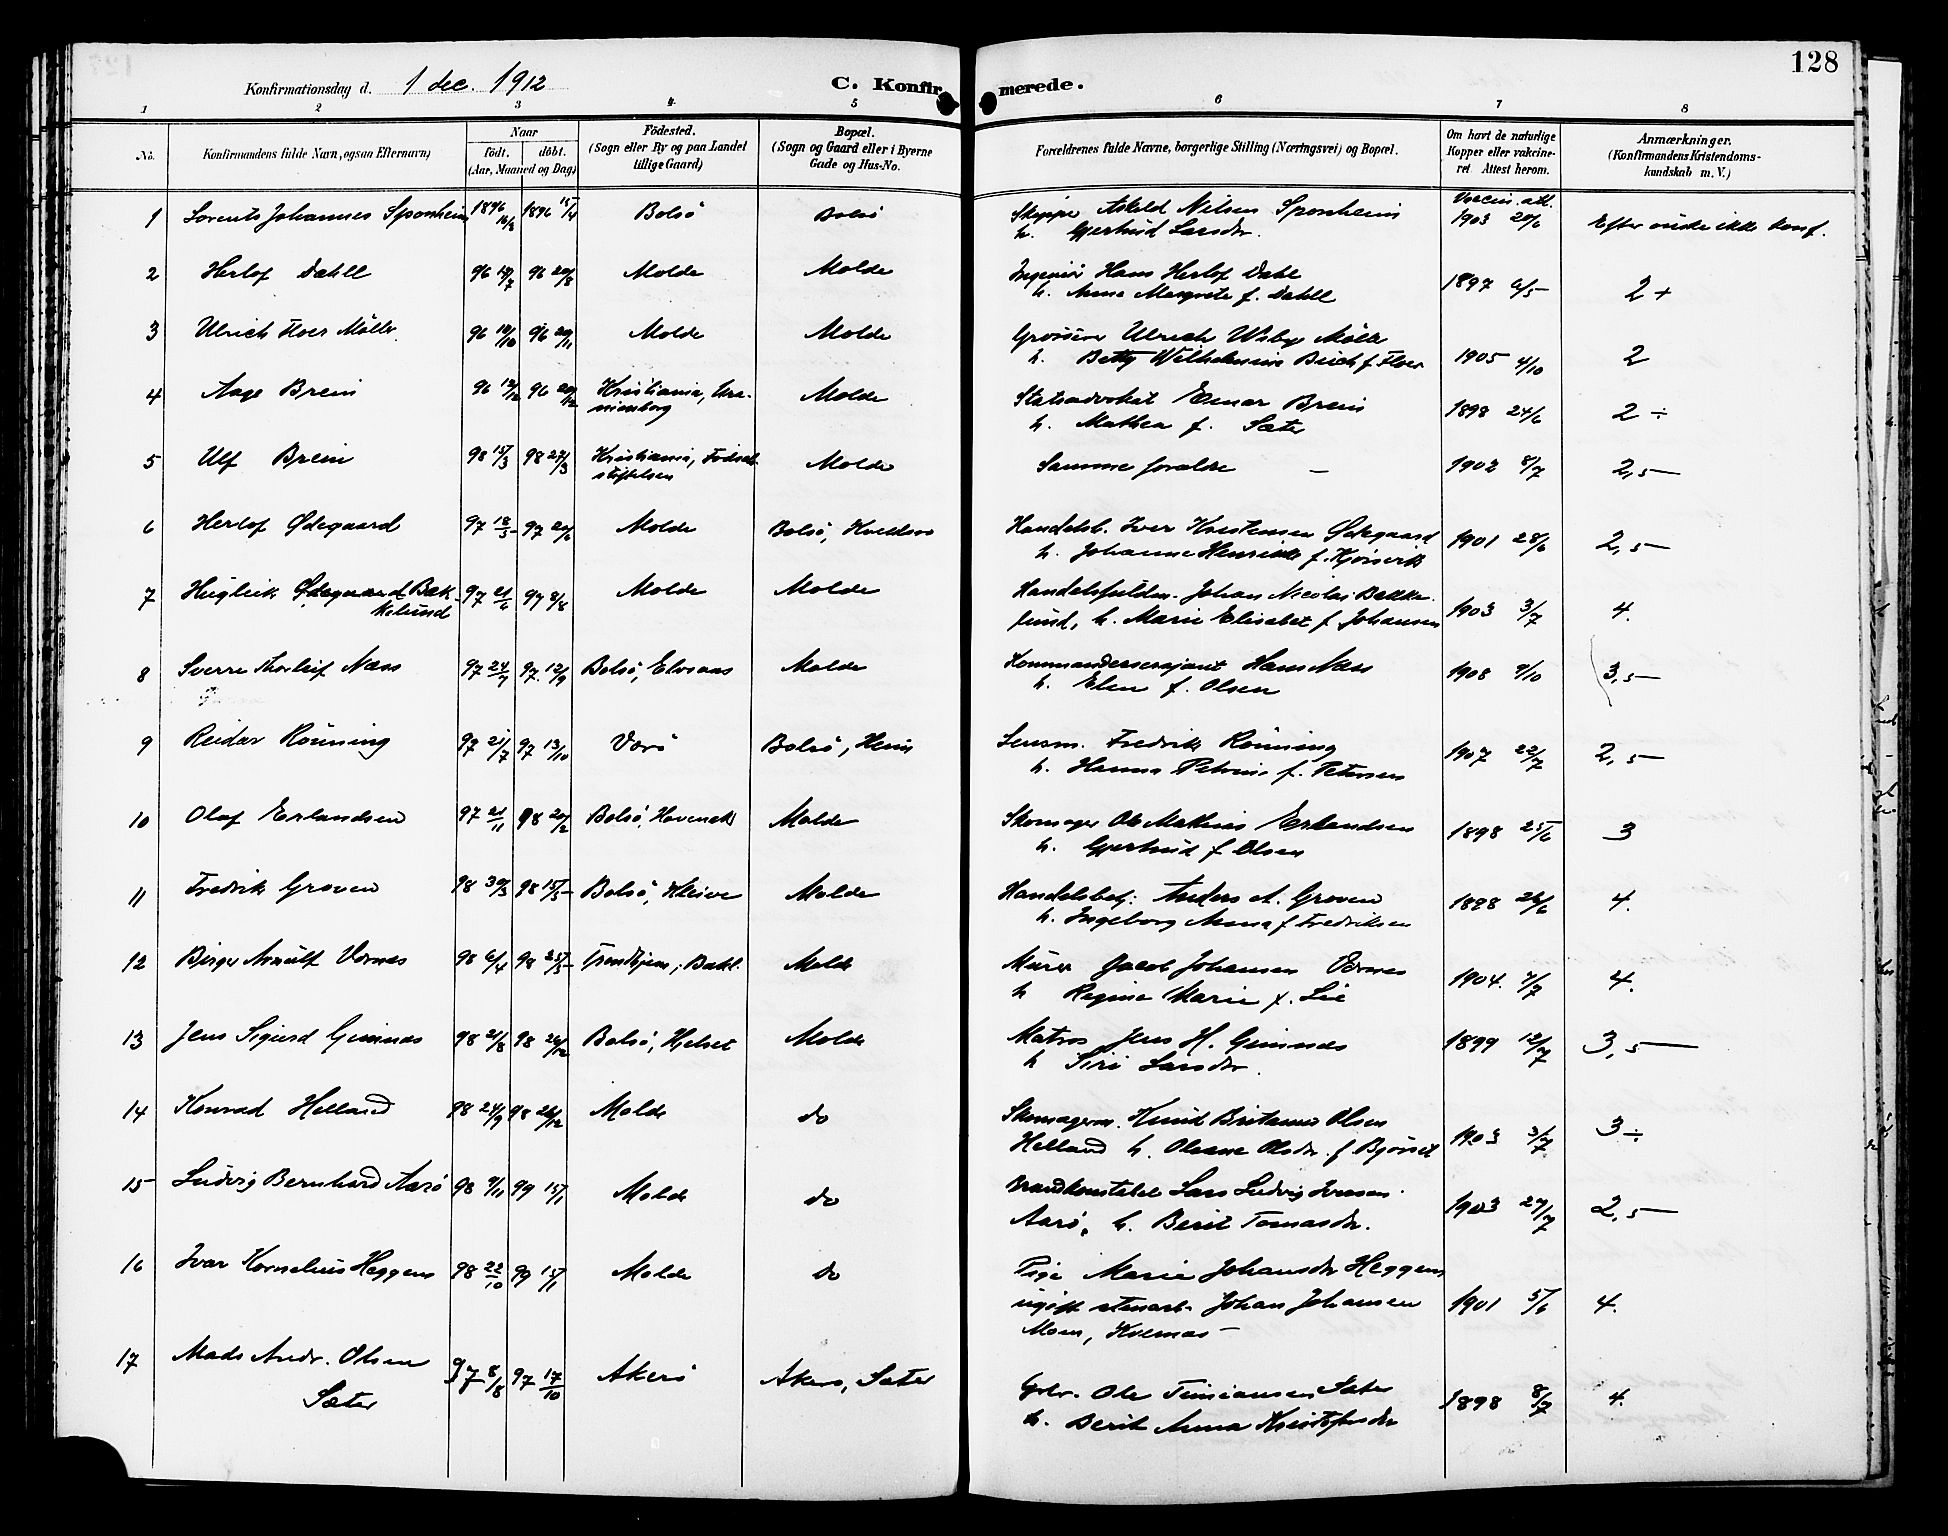 128
Konfirmationsdag d. 1 dec. 1912 C. Konfirmerede.
1 2 3 4 5 6 7 8
No. Konfirmandens fulde Navn, ogsaa Efternavn) Naar födt. döbt. (Aar, Maaned og Dag) Födested. (Sogn eller By og paa Landet tillige Gaard) Bopæl. (Sogn og Gaard eller i Byerne Gade og Hus-No. Forældrenes fulde Navne, borgerlige Stilling (Næringsvei) og Bopæl. Om havt de naturlige Kopper eller vakcineret Attest herom. Anmærkninger. (Konfirmandens Kristendomskundskab m. V.)
1 Lorents Johannes Sponheim 1896 16/3 1896 15/4 Bolsö Bolsö Skipper Askeld Nilsen Sponheim Vaccin. att. 1903 20/6 Efter önske ikke konf.
h. Gjertrud Larsdr.
2 Herlof Dahll 96 19/7 96 20/8 Molde Molde Ingeniör Hans Herlof Dahl 1897 6/5 2 +
h. Anna Margrete f. Dahll
3 Ulrich Floer Möller 96 10/10 96 20/11 Molde Molde Grosserer Ulrich Wisby Möller
h. Betty Wilhelmine Buch f. Floer 1905 4/10 2
4 Aage Brein 96 12/12 96 20/12 Kristiania, Uranienborg Molde Statsadvokat Einar Brein 1898 24/6 2 ÷
h. Mathea f. Sæter
5 Ulf Brein 98 15/3 98 27/3 Kristiania, Födselsstiftelsen Molde Samme forældre – 1902 8/7 2,5
6 Herlof Ødegaard 97 18/5 97 20/6 Molde Bolsö, Handelsb. Iver Kristensen Ødegaard 1901 28/6 2,5
h. Johanne Henrikke f. Kjörsvik
7 Hugleik Ødegaard Bakkelund 97 21/6 97 8/8 Molde Molde Handelsfuldm. Johan Nicolai Bakkelund, h. Marie Elisabet f. Johansen 1903 3/7 4.
8 Sverre Thorleif Næss 97 24/7 97 12/9 Bolsö, Elvsaas Molde Kommandersersjant Hans Næss 1908 9/10 3,5
h. Elen f. Olsen
9 Reidar Rönning 97 21/7 97 13/10 Værö Bolsö, Lensm. Fredrik Rönning 1907 22/7 2,5
h. Hanna Petrine f. Petersen
10 Olaf Erlandsen 97 21/11 98 20/2 Bolsö, Molde Skomager Ole Mathias Erlandsen 1898 25/6 3
h. Gjertrud f Olsen
11 Fredrik Groven 98 30/3 98 15/5 Bolsö, Kleive Molde Handelsbetj. Anders A. Groven 1898 26/6 4.
h. Ingeborg Anna f Fredriksen
12 Birger Arnulf Vernes 98 6/4 98 25/5 Trondhjem, Bakl. Molde Murer Jacob Johansen Vernes 1904. 7/7 4.
h Regine Marie f. Lie
13 Jens Sigurd Gimnæs 98 21/8 98 26/12 Bolsö, Hjelset Molde Matros Jens H. Gimnæs 1899 12/7 3,5
h Siri Larsdr.
14 Konrad Helland 98 24/9 98 26/12 Molde do Skomagerm. Knud Olsen
Helland h. Oleane Olsdr. f Bjørset 1903 3/7 3 ÷
15 Ludvig Bernhard Aarö 98 9/11 99 15/1 Molde do Brandkonstabel Lars Ludvig Iversen
Aarö, h. Berit Tomasdr. 1903 27/7 2,5
16 Ivar Kornelius Heggem 98 22/10 99 15/1 Molde do Pige Marie Johansdr Heggem
ugift stenarb. Johan Johansen 1901 5/6 4.
Moen, Kvernæs –
17 Mads Andr. Olsen Sæter 97 8/8 97 17/10 Akerö Akerö, Sæter Gbr. Ole Sæter
h. Berit Anna Kristofersdr 1898 8/7 4.